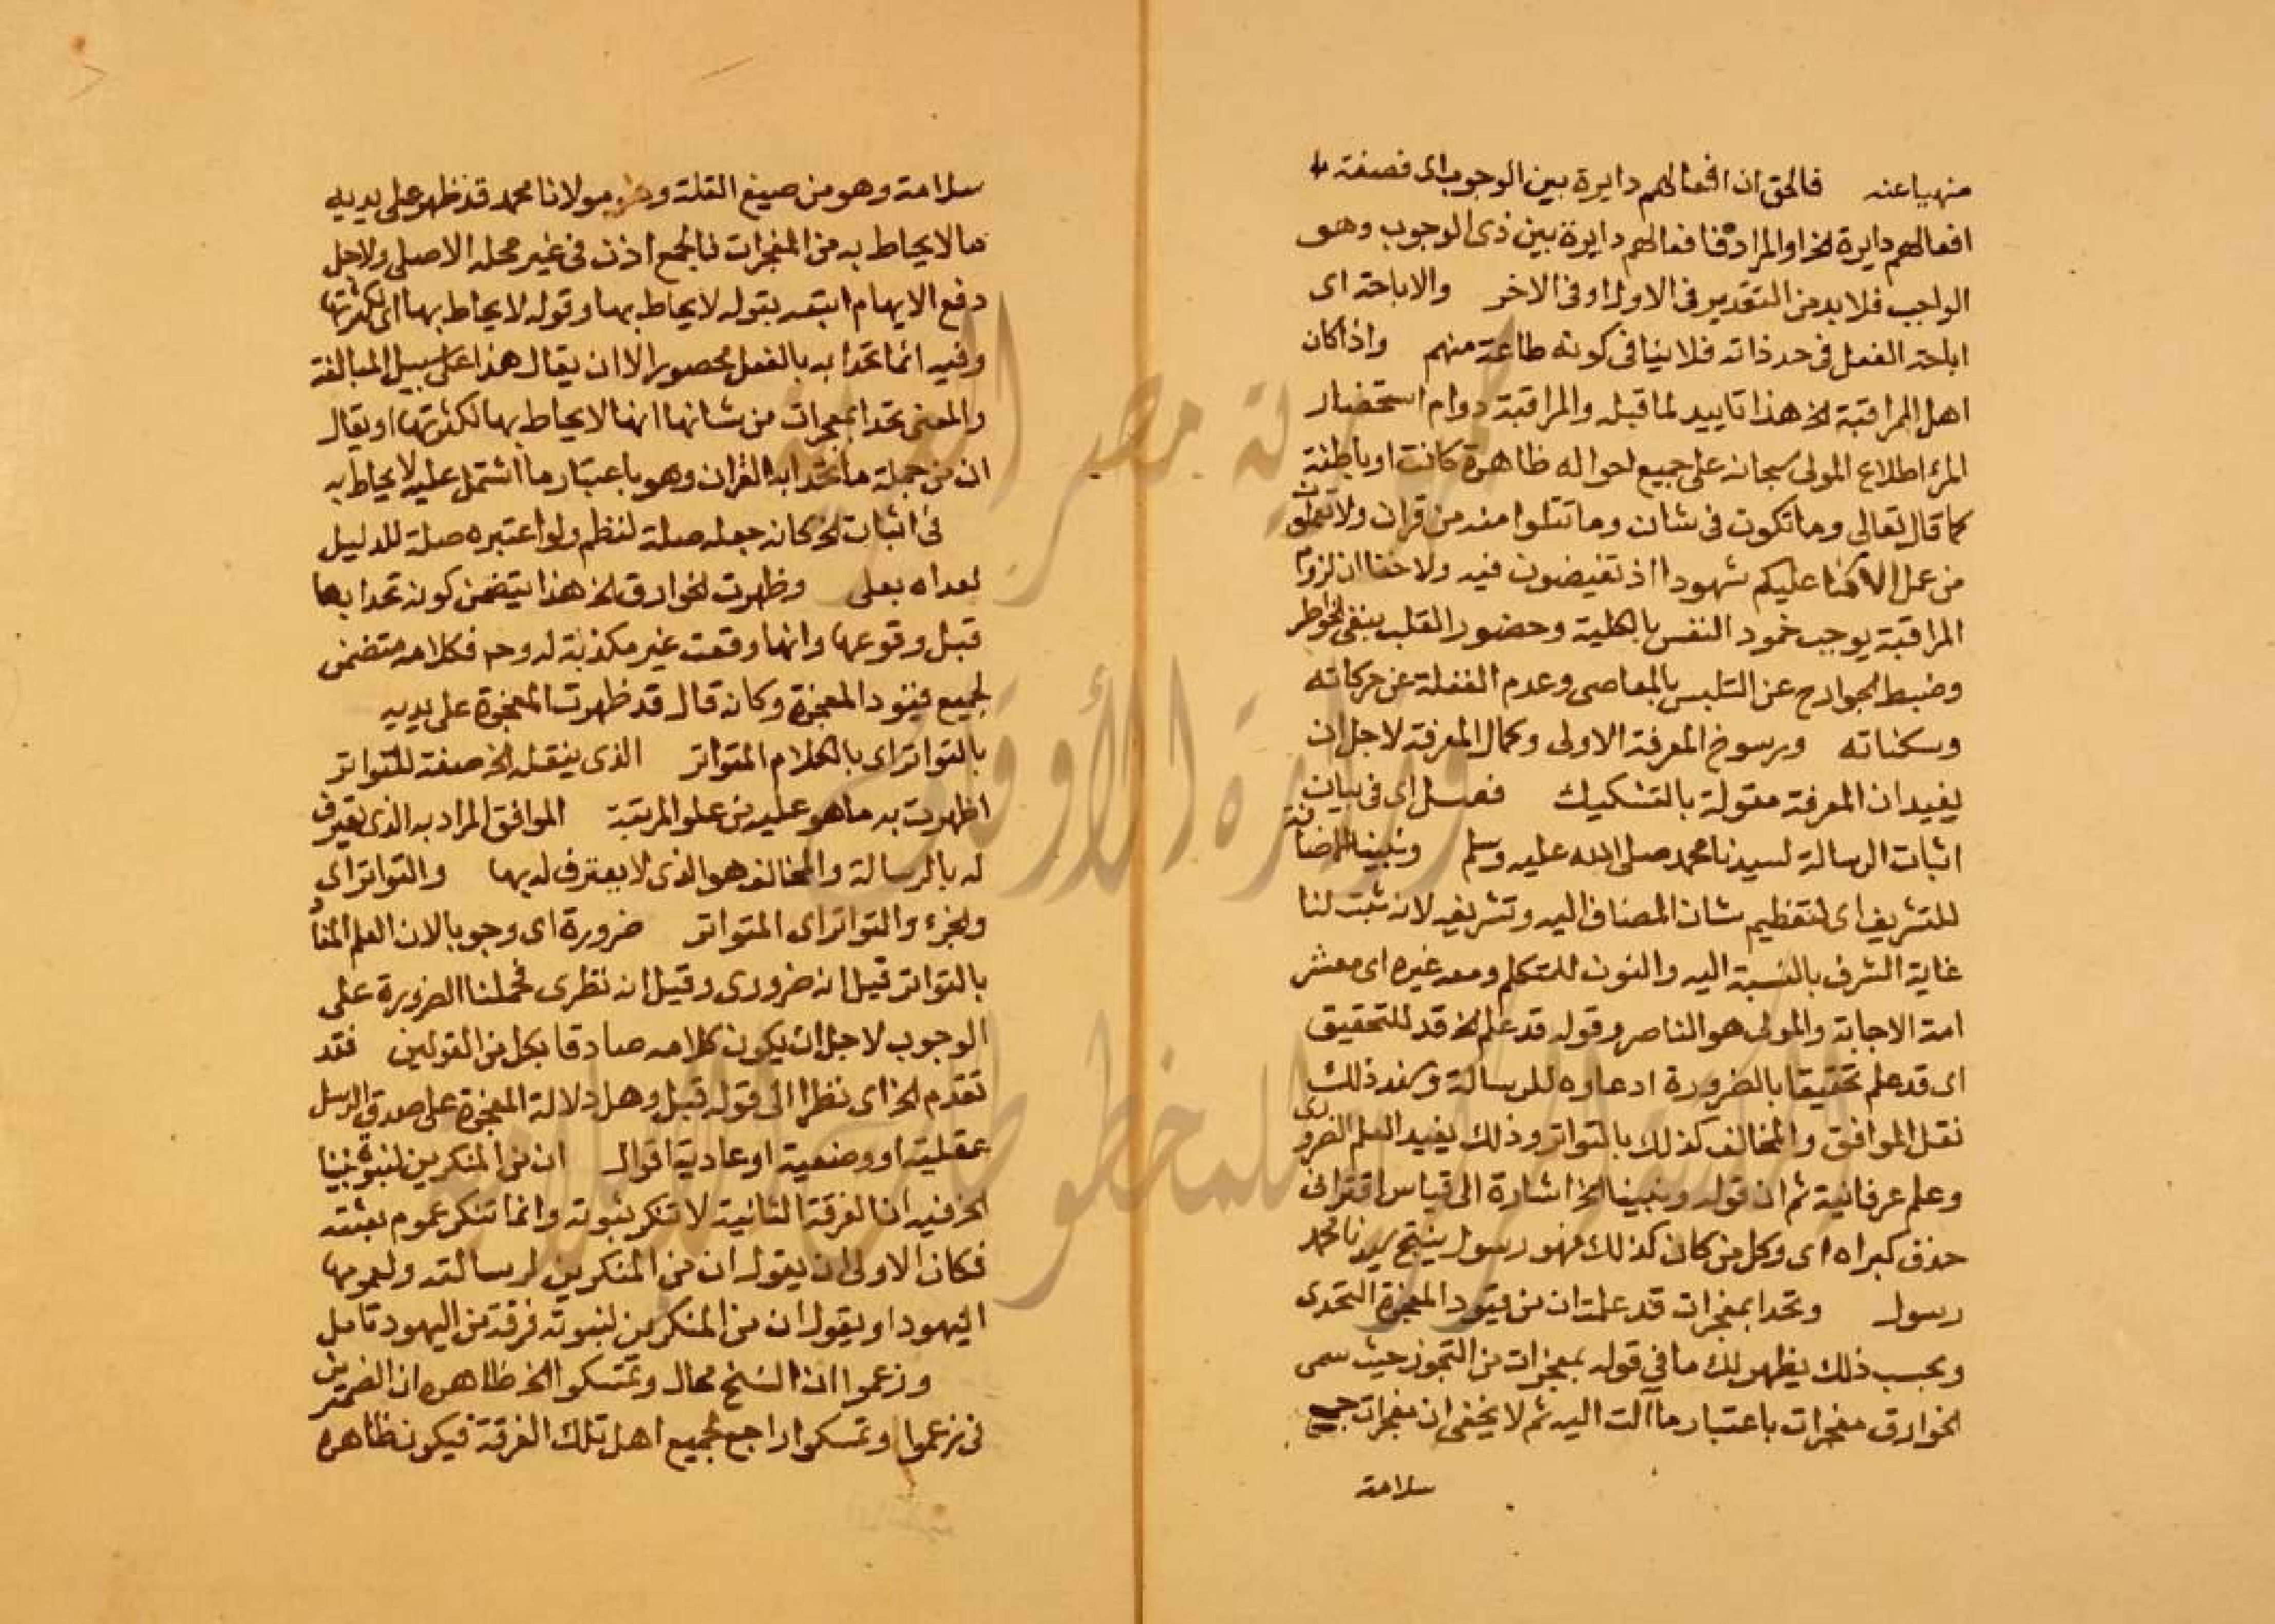 منهيا عنه فالحق ان افعالهم دايرة بين الوجوب الخ فصفة
افعالهم دايرة الخ او المراد فافعالهم دايرة بين ذى الوجوب وهو
الواجب فلا بد من التقدير فى الاول او فى الاخر والاباحة اى
اباحة الفعل فى حد ذاته فلا ينافى كونه طاعة منهم واذا كان
اهل المراقبة الخ هذا تاييد لما قبله والمراقبة دوام استحضار
المرء اطلاع المولى سبحانه على جميع احواله ظاهرة كانت او باطنة
كما قال تعالى وما تكون فى شان وما تتلوا منه من قران ولا تعملون
من عمل الا كنا عليكم شهودا اذ تفيضون فيه ولا خفا ان لزوم
المراقبة يوجب خمود النفس بالكلية وحضور القلب بنفى الخواطر
وضبط الجوارح عن التلبس بالمعاصى وعدم الغفلة عن حركاته
وسكناته ورسوخ المعرفة الاولى وكمال المعرفة لاجل ان
يفيد ان المعرفة مقولة بالتشكيك فصل اى فى بيان
اثبات الرسالة لسيدنا محمد صلى الله عليه وسلم ونبينا الاضافة
للتشريف اى لتعظيم شان المضاف اليه وتشريفه لانه ثبت لنا
غاية الشرف بالنسبة اليه والنون للمتكلم ومعه غيره اى معشر
امة الاجابة والمولى هو الناصر وقوله قد علم الخ قد للتحقيق
اى قد علم تحقيقا بالضرورة ادعاوه للرسالة وسند ذلك
نقل الموافق والمخالف كذلك بالتواتر وذلك يفيد العلم الضرورى
وعلم عرفانية ثم ان قوله ونبينا الخ اشارة الى قياس اقترانى
حذف كبراه اى وكل من كان كذلك فهو رسول ينتج سيدنا محمد
رسول وتحدا بمعجزات قد علمت ان من قيود المعجزة التحدى
وبحسب ذلك يظهر لك ما فى قوله بمعجزات من التجوز حيث سمى
الخوارق معجزات باعتبار ما آلت اليه ثم لا يخفى ان معجزات جمع
سلامة
سلامة وهو من صيغ القلة ومولانا محمد قد ظهر على يديه
ما لا يحاط به من المعجزات فالجمع اذن فى غير محله الاصلى ولاجل
دفع الايهام اتبعه بقوله لا يحاط بها وقوله لا يحاط بها اى لكثرتها
وفيه انما تحدا به بالفعل محصور الا ان يقال هذا على سبيل المبالغة
والمعنى تحدا بمعجزات من شانها انها لا يحاط بها لكثرتها او يقال
ان من جملة ما تحدا به القران وهو باعتبار ما اشتمل عليه لا يحاط به
فى اثبات الخ كانه جعله صلة لنظم ولو اعتبره صلة للدليل
لعداه بعلى وظهرت الخوارق الخ هذا يتضمن كونه تحدا بها
قبل وقوعها وانها وقعت غير مكذبة له وح فكلامه متضمن
لجميع قيود المعجزة وكانه قال قد ظهرت المعجزة على يديه
بالتواتر اى بالكلام المتواتر الذى ينقل الخ صفة للتواتر
اظهرت به ما هو عليه من علو المرتبة الموافق المراد به الذى يعترف
له بالرسالة والمخالف هو الذى لا يعترف له بها والتواتر اى
والخبر والتواتر اى المتواتر ضرورة اى وجوبا لان العلم المفاد
بالتواتر قيل انه ضرورى وقيل انه نظرى فحملنا الضرورة على
الوجوب لاجل ان يكون كلامه صادقا بكل من القولين فقد
تقدم الخ اى نظرا الى قوله قبل وهل دلالة المعجزة على صدق الرسل
عقلية او وضعية او عادية اقوال ان من المنكرين لنبوة نبينا
الخ فيه ان الفرقة الثانية لا تنكر نبوته وانما تنكر عموم بعثته
فكان الاولى ان يقول ان من المنكرين لرسالته ولعمومها
اليهود او يقول ان من المنكرين لنبوته فرقة من اليهود تامل
وزعموا ان النسخ محال وتمسكوا الخ ظاهره ان الضميرين
فى زعموا وتمسكوا راجع لجميع اهل تلك الفرقة فيكون ظاهره